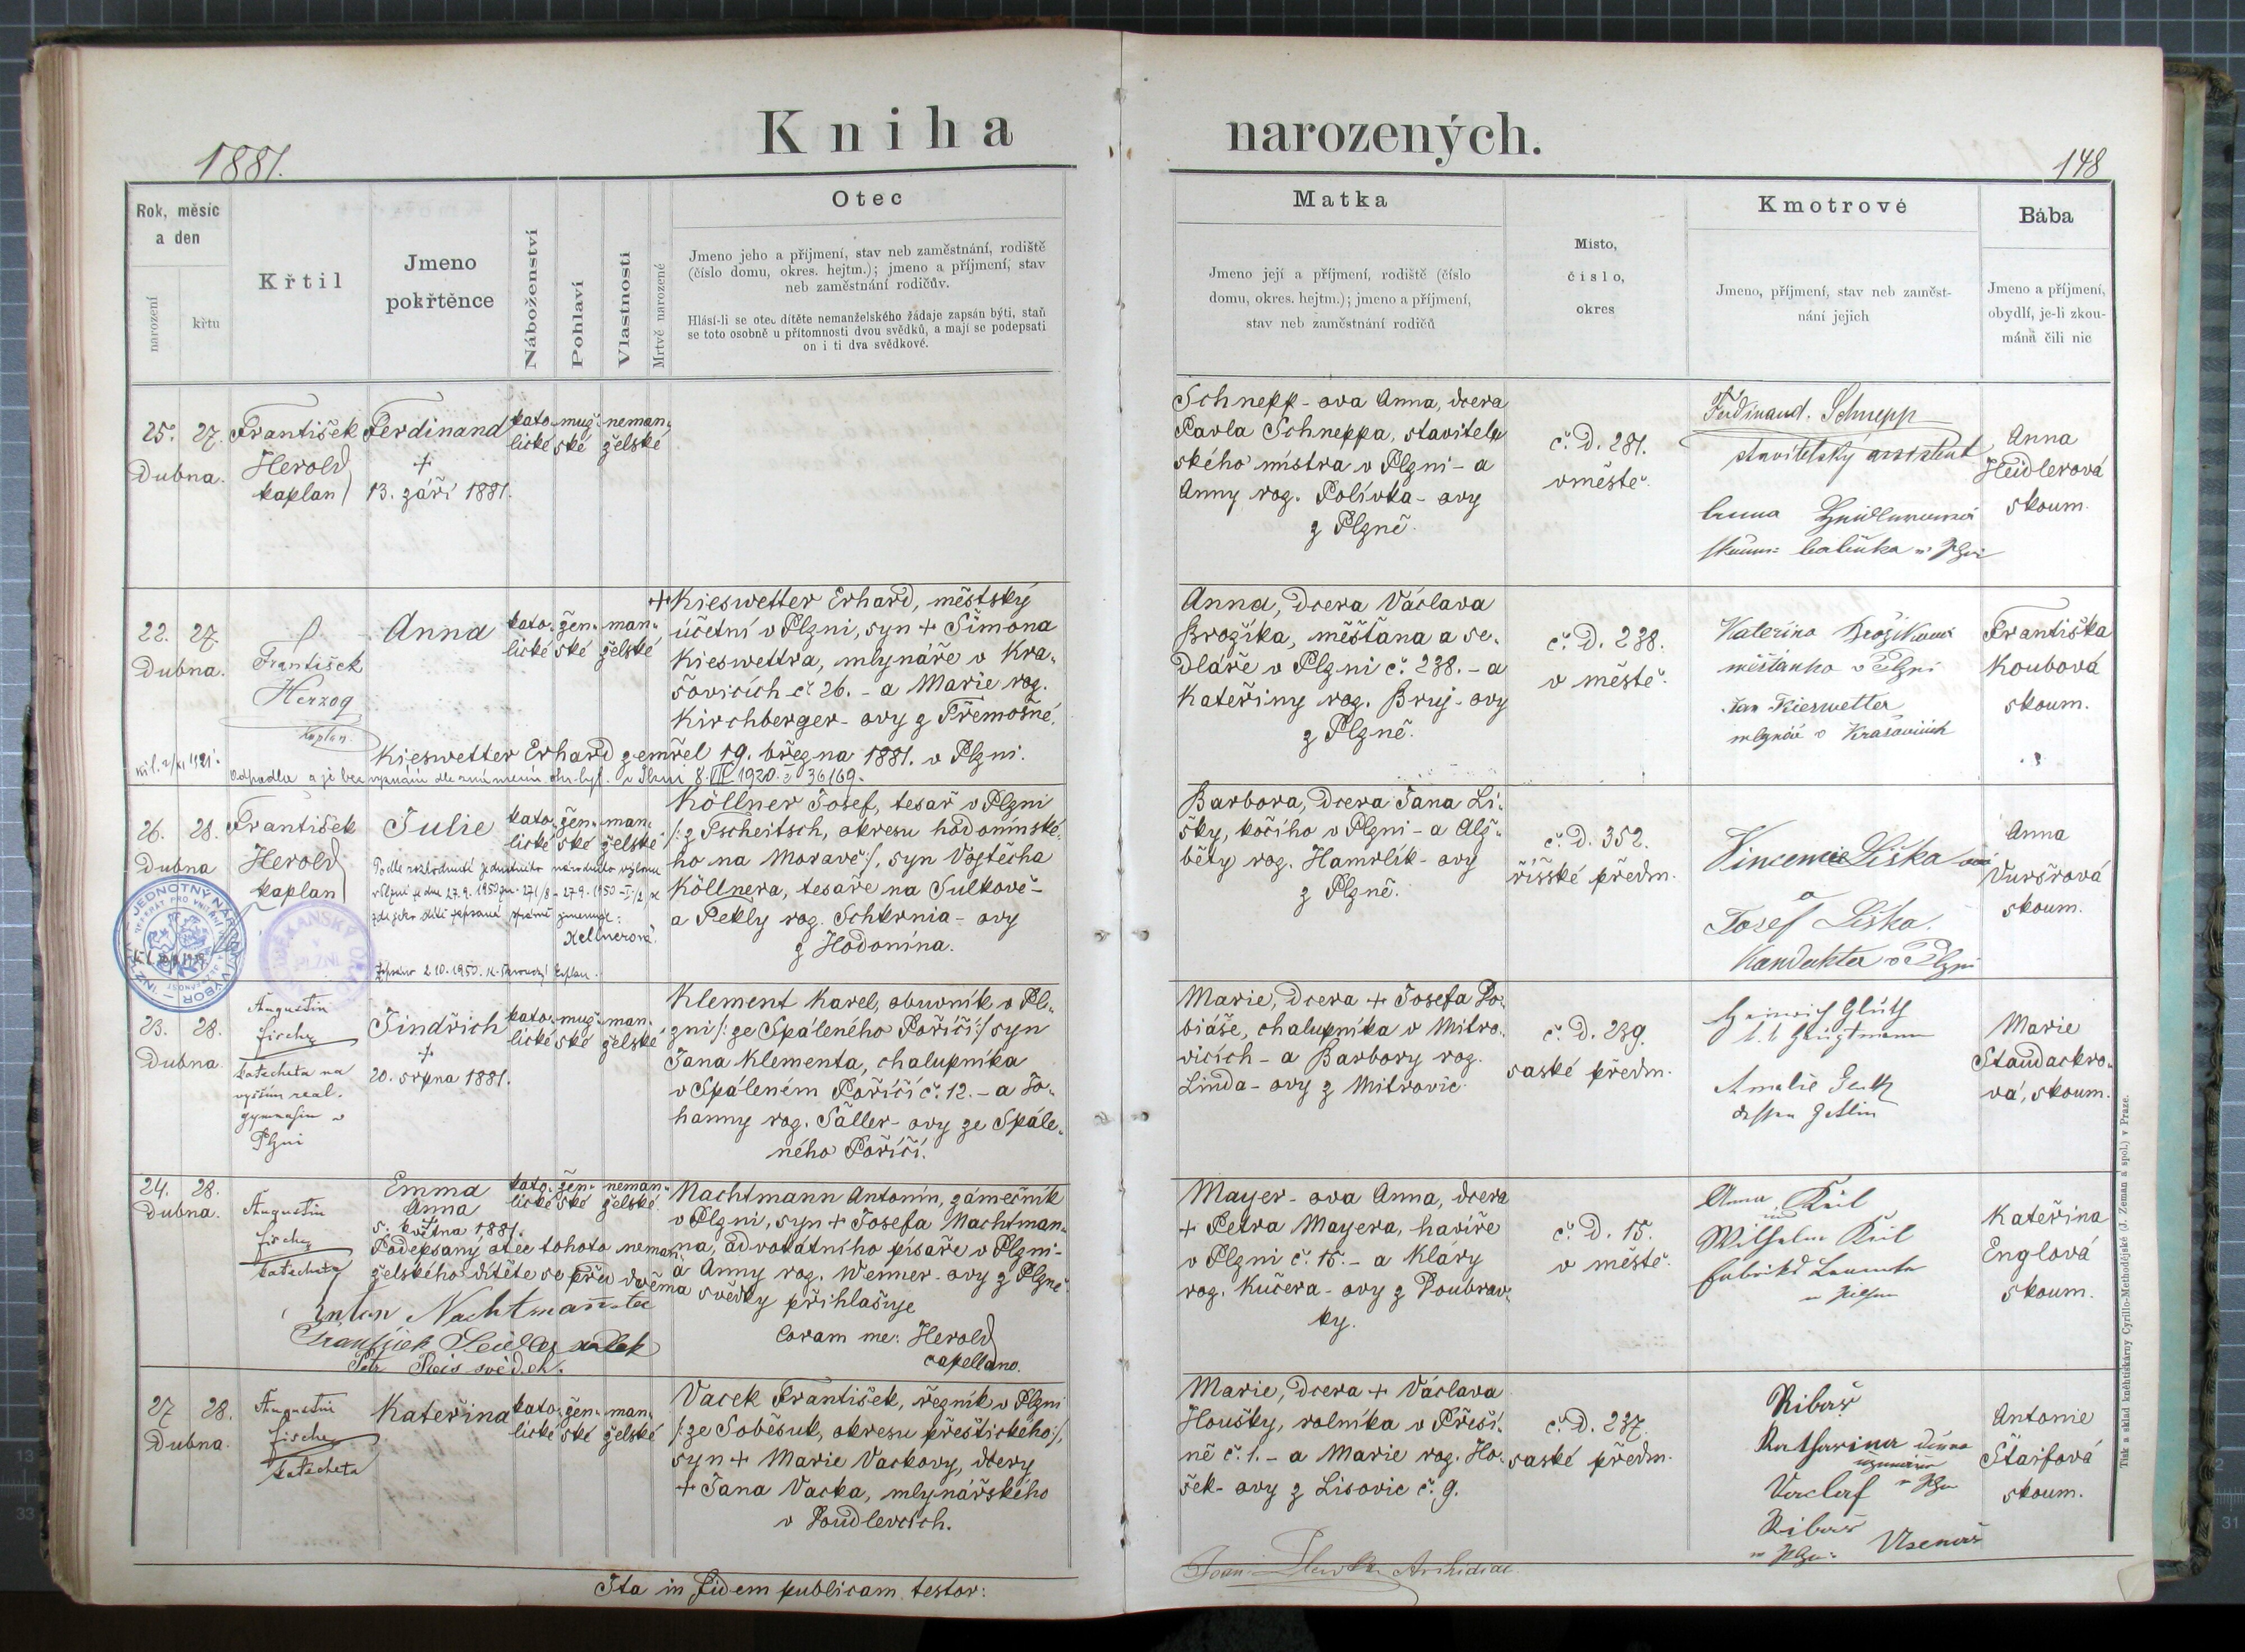 Kniha narozených.
1881.
148
Rok, měsíc
a den
narození
křtu
Křtil
Jmeno
pokřtěnce
Náboženství
Pohlaví
Vlastnosti
Mrtvě narozené
Otec
Jmeno jeho a příjmení, stav neb zaměstnání, rodiště
(číslo domu, okres. hejtm.); jmeno a příjmení, stav
neb zaměstnání rodičův.
Hlásí-li se otec dítěte nemanželského žádaje zapsán býti, staň
se toto osobně u přítomnosti dvou svědků, a mají se podepsati
on i ti dva svědkové.
Matka
Jmeno její a příjmení, rodiště (číslo
domu, okres. hejtm.); jmeno a příjmení,
stav neb zaměstnání rodičů
Místo,
číslo,
okres
Kmotrové
Jmeno, příjmení, stav neb zaměst-
nání jejich
Bába
Jmeno a příjmení,
obydlí, je-li zkou-
mána čili nic
25. 27.
Dubna.
František
Herold
kaplan
Ferdinand
+
13. září 1881.
kato- muž- neman-
lické ské želské
Schnepp-ova Anna, dcera
Pavla Schneppa, stavitel-
ského mistra v Plzni - a
Anny roz. Polívka-ovy
z Plzně.
č. D. 281.
v městě.
Ferdinand Schnepp
stavitelský assistent
babička
Anna
Heidlerová
skoum.
22. 27.
Dubna.
František
Herzog
kaplan.
Anna
kato- žen- man-
lické ské želské
+ Kieswetter Erhard, městský
účetní v Plzni, syn + Šimona
Kieswettra, mlynáře v Kra-
šovicích č. 26. - a Marie roz.
Kirchberger-ovy z Třemošné.
Kieswetter Erhard zemřel 19. března 1881. v Plzni.
Odpadla a je bez vyznání
Anna, dcera Václava
Brožíka, měšťana a se-
dláře v Plzni č. 238. - a
Kateřiny roz. Bruj-ovy
z Plzně.
č. D. 238.
v městě.
Kateřina Brožíková
měšťanka v Plzni
Jan Kieswetter
mlynář v Krašovicích
Františka
Koubová
skoum.
26. 28.
Dubna
František
Herold
kaplan
Julie
kato- žen- man-
lické ské želské
Podle rozhodnutí jednotného národního výboru
v Plzni ze dne 27.9.1950
Kellnerová.
Zapsáno 2.10.1950.
Köllner Josef, tesař v Plzni
/: z Tscheitsch, okresu hodonínské-
ho na Moravě :/, syn Vojtěcha
Köllnera, tesaře na Sulkově -
a Pekly roz. Schkrnia-ovy
z Hodonína.
Barbora, dcera Jana Li-
šky, kočího v Plzni - a Alž-
běty roz. Hamrlík-ovy
z Plzně.
č. D. 352.
říšské předm.
Vincencie Liška
a
Josef Liška.
Kandukter v Plzni
Anna
Vuršrová
skoum.
23. 28.
Dubna.
Augustin
Fischer
katecheta na
vyšším real.
gymnasiu v
Plzni
Jindřich
+
20. srpna 1881.
kato- muž- man-
lické ské želské
Klement Karel, obuvník v Pl-
zni /: ze Spáleného Poříčí :/ syn
Jana Klementa, chalupníka
v Spáleném Poříčí č. 12. - a Jo-
hanny roz. Säller-ovy ze Spále-
ného Poříčí.
Marie, dcera + Josefa To-
biáše, chalupníka v Mitro-
vicích - a Barbory roz.
Linda-ovy z Mitrovic.
č. D. 239.
saské předm.
Heinrich Glüth
Amalie
Marie
Staudackro-
vá, skoum.
24. 28.
Dubna.
Augustin
Fischer
katecheta
Emma
Anna
+
5. května 1881.
kato- žen- neman-
lické ské želské.
Nachtmann Antonín, zámečník
v Plzni, syn + Josefa Nachtman-
na, advokátního písaře v Plzni -
a Anny roz. Wenner-ovy z Plzně.
Podepsaný otec tohoto neman-
želského dítěte se před dvěma svědky přihlašuje
Anton Nachtmann otec
František Seidler svědek
Petr Reis svědek.
Coram me: Herold
capellano.
Mayer-ova Anna, dcera
+ Petra Mayera, havíře
v Plzni č. 15. - a Kláry
roz. Kučera-ovy z Doubrav-
ky.
č. D. 15.
v městě.
Anna
Wilhelm
Kateřina
Englová
skoum.
27 28.
Dubna.
Augustin
Fischer
katecheta
Kateřina
kato- žen- man-
lické ské želské
Vacek František, řezník v Plzni
/: ze Soběsuk, okresu přeštického :/,
syn + Marie Vackovy, dcery
+ Jana Vacka, mlynářského
v Poudlevcích.
Marie, dcera + Václava
Houšky, rolníka v Přeší-
ně č. 1. - a Marie roz. Ho-
šek-ovy z Lisovic č. 9.
č. D. 237.
saské předm.
Ribař
Katharina
Ribař
Antonie
Štaifová
skoum.
Ita in fidem publicam testor:
Archidiac.
Tisk a sklad kněhtiskárny Cyrillo-Methodějské (J. Zeman a spol.) v Praze.